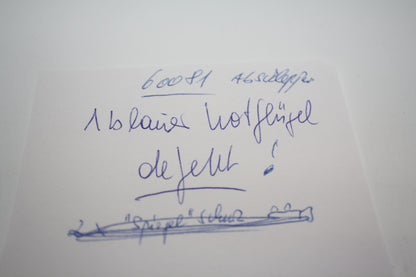 60081 Abschlepper
1 blauer Kotflügel
defekt !
2x "Spiegel" Schutz